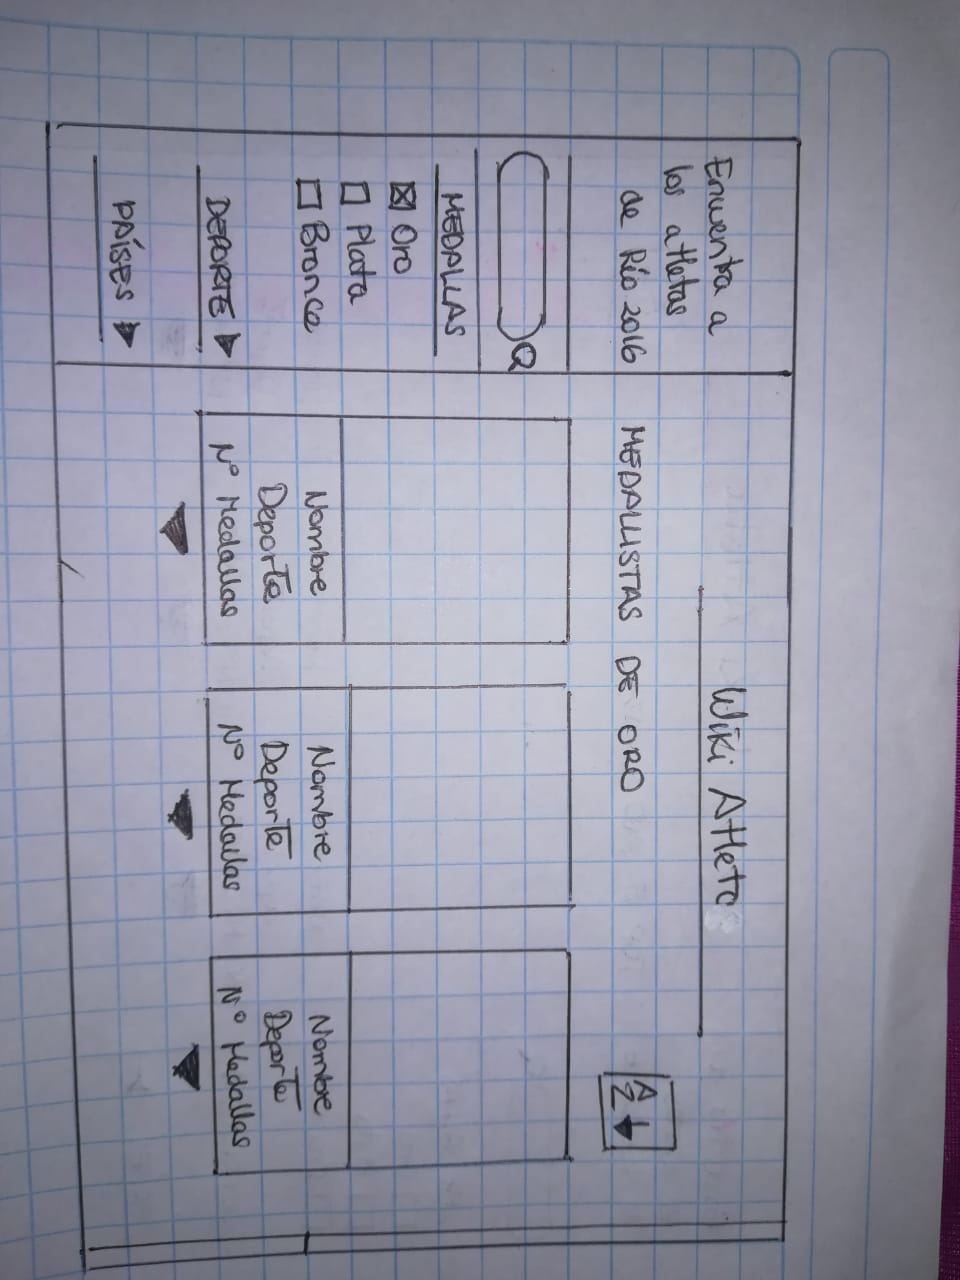 Encuentra a
los atletas
de Río 2016
MEDALLAS
Oro
Plata
Bronce
DEPORTE
PAÍSES
Wiki Atleta
MEDALLISTAS DE ORO
A
Z
Nombre
Deporte
Nº Medallas
Nombre
Deporte
Nº Medallas
Nombre
Deporte
Nº Medallas